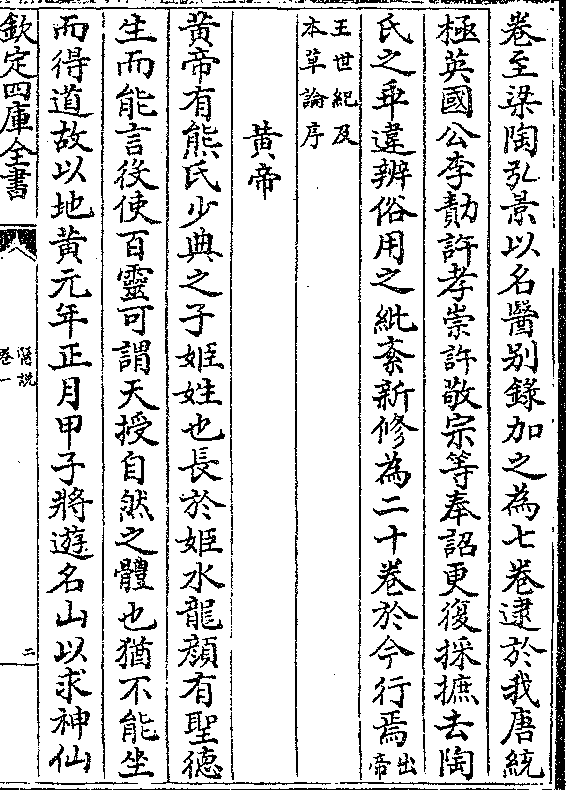 卷至梁陶弘景以名醫别錄加之為七卷逮於我唐統
極英國公李勣許孝崇許敬宗等奉詔更復採摭去陶
氏之乖違辨俗用之紕紊新修為二十卷於今行焉出帝
王世紀及
本草論序
黄帝
黄帝有熊氏少典之子姬姓也長於姬水龍顔有聖德
生而能言役使百靈可謂天授自然之體也猶不能坐
而得道故以地黄元年正月甲子將遊名山以求神仙
欽定四庫全書
醫説
卷一
二